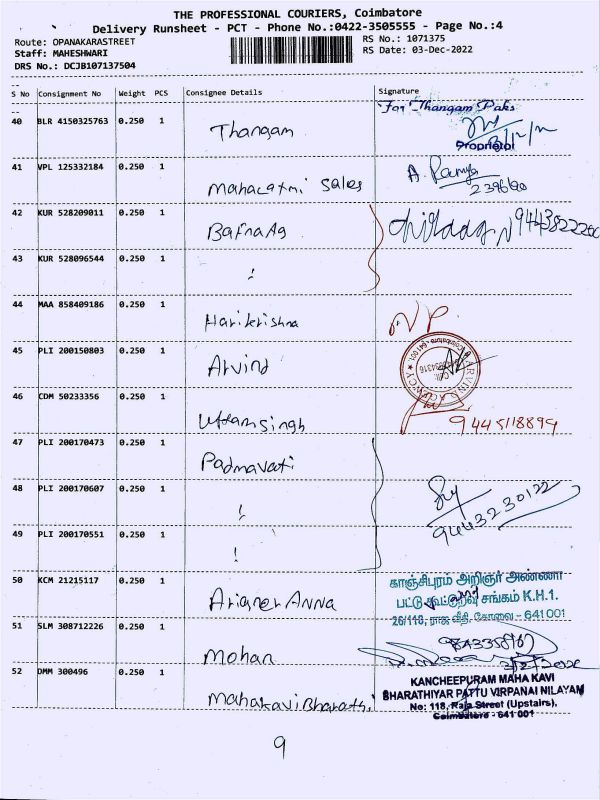 THE PROFESSIONAL COURIERS, Coimbatore
Delivery Runsheet - PCT - Phone No.:0422-3505555 - Page No.:4
Route: OPANAKARASTREET
RS No.: 1071375
Staff: MAHESHWARI
RS Date: 03-Dec-2022
DRS No.: DCJB107137504
S No Consignment No Weight PCS Consignee Details Signature
For Thangam Paks
40 BLR 4150325763 0.250 1 Thangam
Proprietor
41 VPL 125332184 0.250 1 Mahalaxmi Sales A. Ramya
42 KUR 528209011 0.250 1 BafnaAg
43 KUR 528096544 0.250 1 !
44 MAA 858409186 0.250 1 Harikrishna N.P.
45 PLI 200150803 0.250 1 Arvind
46 CDM 50233356 0.250 1 Uttamsingh 9445118899
47 PLI 200170473 0.250 1 Padmavati
48 PLI 200170607 0.250 1 !
9443230122
49 PLI 200170551 0.250 1 !
50 KCM 21215117 0.250 1 Arigner Anna
காஞ்சிபுரம் அறிஞர் அண்ணா
பட்டு கூட்டுறவு சங்கம் K.H.1.
26/118, ராஜ வீதி, கோவை - 641001
51 SLM 308712226 0.250 1 Mohan
52 DMM 300496 0.250 1 Mahakavi Bharathi
KANCHEEPURAM MAHA KAVI
BHARATHIYAR PATTU VIRPANAI NILAYAM
No: 118, Raja Street (Upstairs),
Coimbatore - 641 001
9